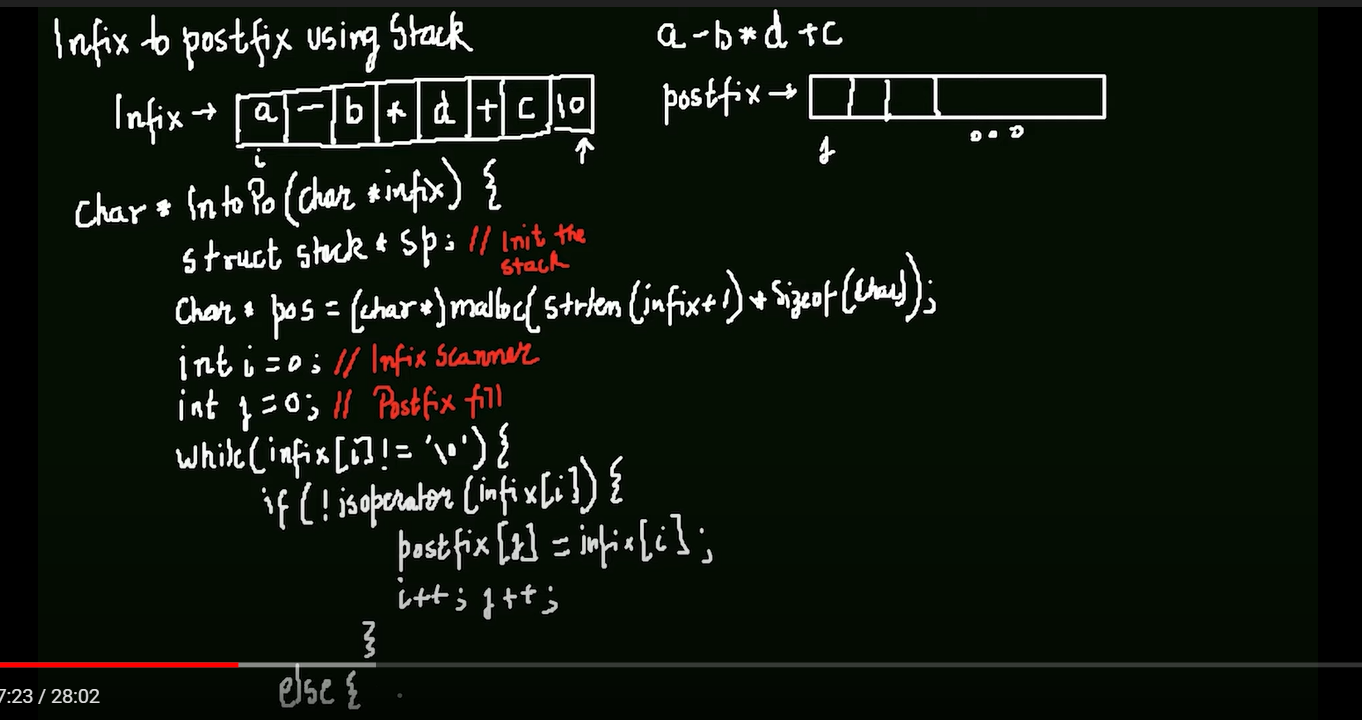 Infix to postfix using Stack
a-b*d+c
Infix → a - b * d + c \0
postfix →
i
j
char * InToPo(char *infix) {
struct stack * sp; // Init the
stack
char * pos = (char*)malloc(strlen(infix+1)*sizeof(char));
int i=0; // Infix scanner
int j=0; // Postfix fill
while(infix[i]!='\0'){
if(!isoperator(infix[i]){
postfix[j]=infix[i];
i++; j++;
}
else{
7:23 / 28:02